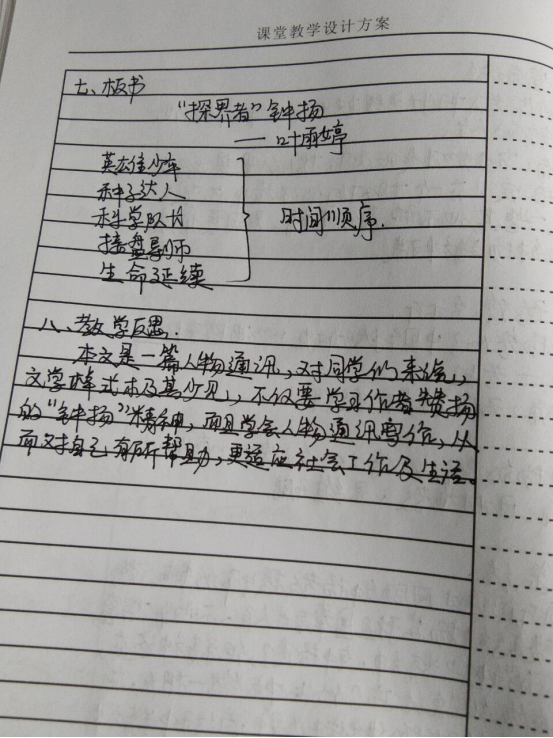 课堂教学设计方案
七、板书
“探界者”钟扬
——叶雨婷
英杰佳少年
种子达人
科学队长
接盘导师
生命延续
时间顺序.
八、教学反思
本文是一篇人物通讯,对同学们来说,
文学样式本及其少见,不仅要学习作者赞扬
的“钟扬”精神,而且学会人物通讯写作,从
而对自己有所帮助,更适应社会工作及生活。